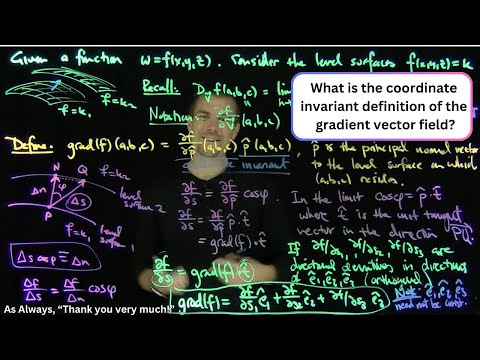 Given a function w = f(x,y,z). Consider the level surfaces f(x,y,z)=k
f=k₁
f=k₂
Recall: D f(a,b,c) = lim
Notation ∂f/∂v (a,b,c)
What is the coordinate
invariant definition of the
gradient vector field?
Define: grad(f)(a,b,c) = ∂f/∂p̂ (a,b,c) p̂ (a,b,c),
coordinate invariant
p̂ is the principal normal vector
to the level surface on which
(a,b,c) resides.
N Q f=k₂
Δn φ Δs
P
level
surface 2
f=k₁
level
surface 1
Δs cos φ ≅ Δn
Δf/Δs = Δf/Δn cos φ
∂f/∂s = ∂f/∂p̂ cos φ
∂f/∂s = ∂f/∂p̂ p̂·t̂
= grad(f)·t̂
∂f/∂s = grad(f)·t̂
In the limit cos φ = p̂·t̂
where t̂ is the unit tangent
vector in the direction
If ∂f/∂s₁, ∂f/∂s₂, ∂f/∂s₃ are
directional derivatives in directions
of ê₁, ê₂, ê₃ (orthogonal)
grad(f) = ∂f/∂s₁ ê₁ + ∂f/∂s₂ ê₂ + ∂f/∂s₃ ê₃
Note: ê₁, ê₂, ê₃
need not be
As Always, "Thank you very much!"